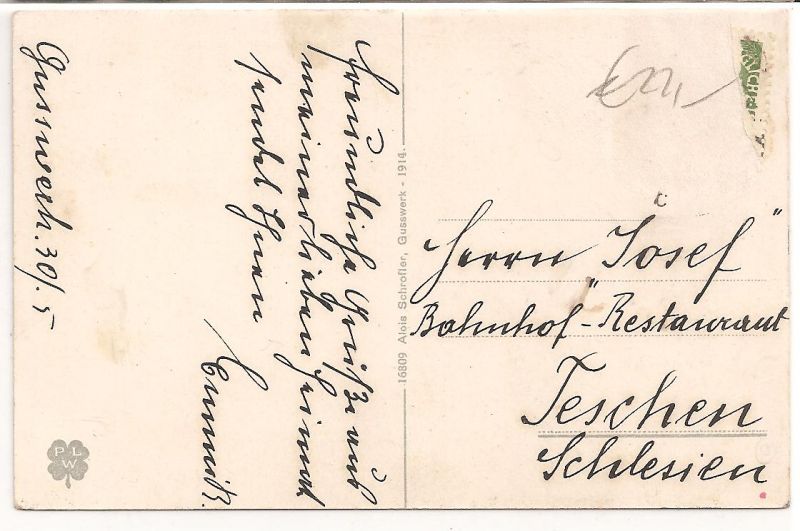 Gusswerk. 30/.5
Freundliche Grüße aus
meiner lieben Heimat
sendet Ihnen
16809 Alois Schrofler, Gusswerk - 1914.
Herrn Josef
Bahnhof-"Restaurant"
Teschen
Schlesien
P L
W